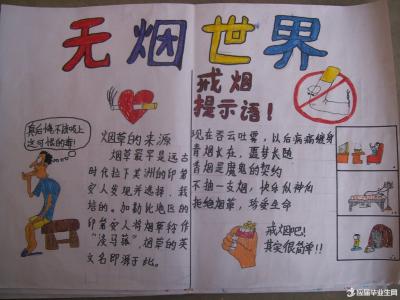 无烟世界
戒烟
提示语！
烟草的来源
烟草最早是远古
时代拉丁美洲的印第
安人发现并选择、栽
培的。加勒比地区的
印第安人将烟草称作
烟草的英
文名即源于此。
现在吞云吐雾，以后病痛缠身
青烟长在，噩梦长随
香烟是魔鬼的契约
不抽一支烟，快乐似神仙
拒绝烟草，珍爱生命
戒烟吧！
其实很简单！！
应届毕业生网